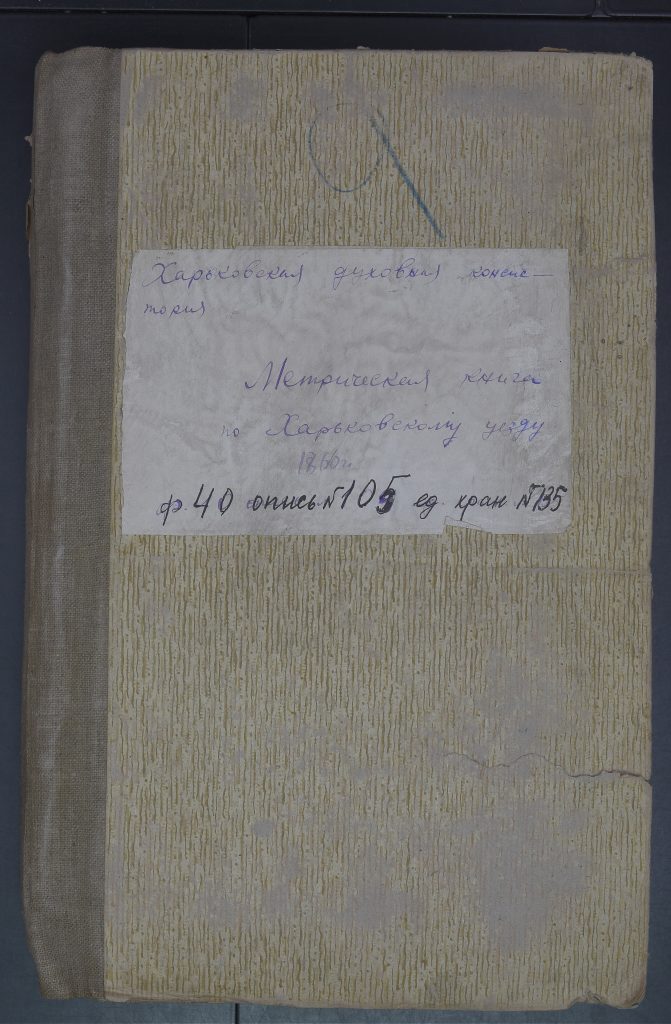 Харьковская духовная консис-
тория
Метрическая книга
по Харьковскому уезду
1860г.
ф. 40 опись № 105 ед. хран № 135